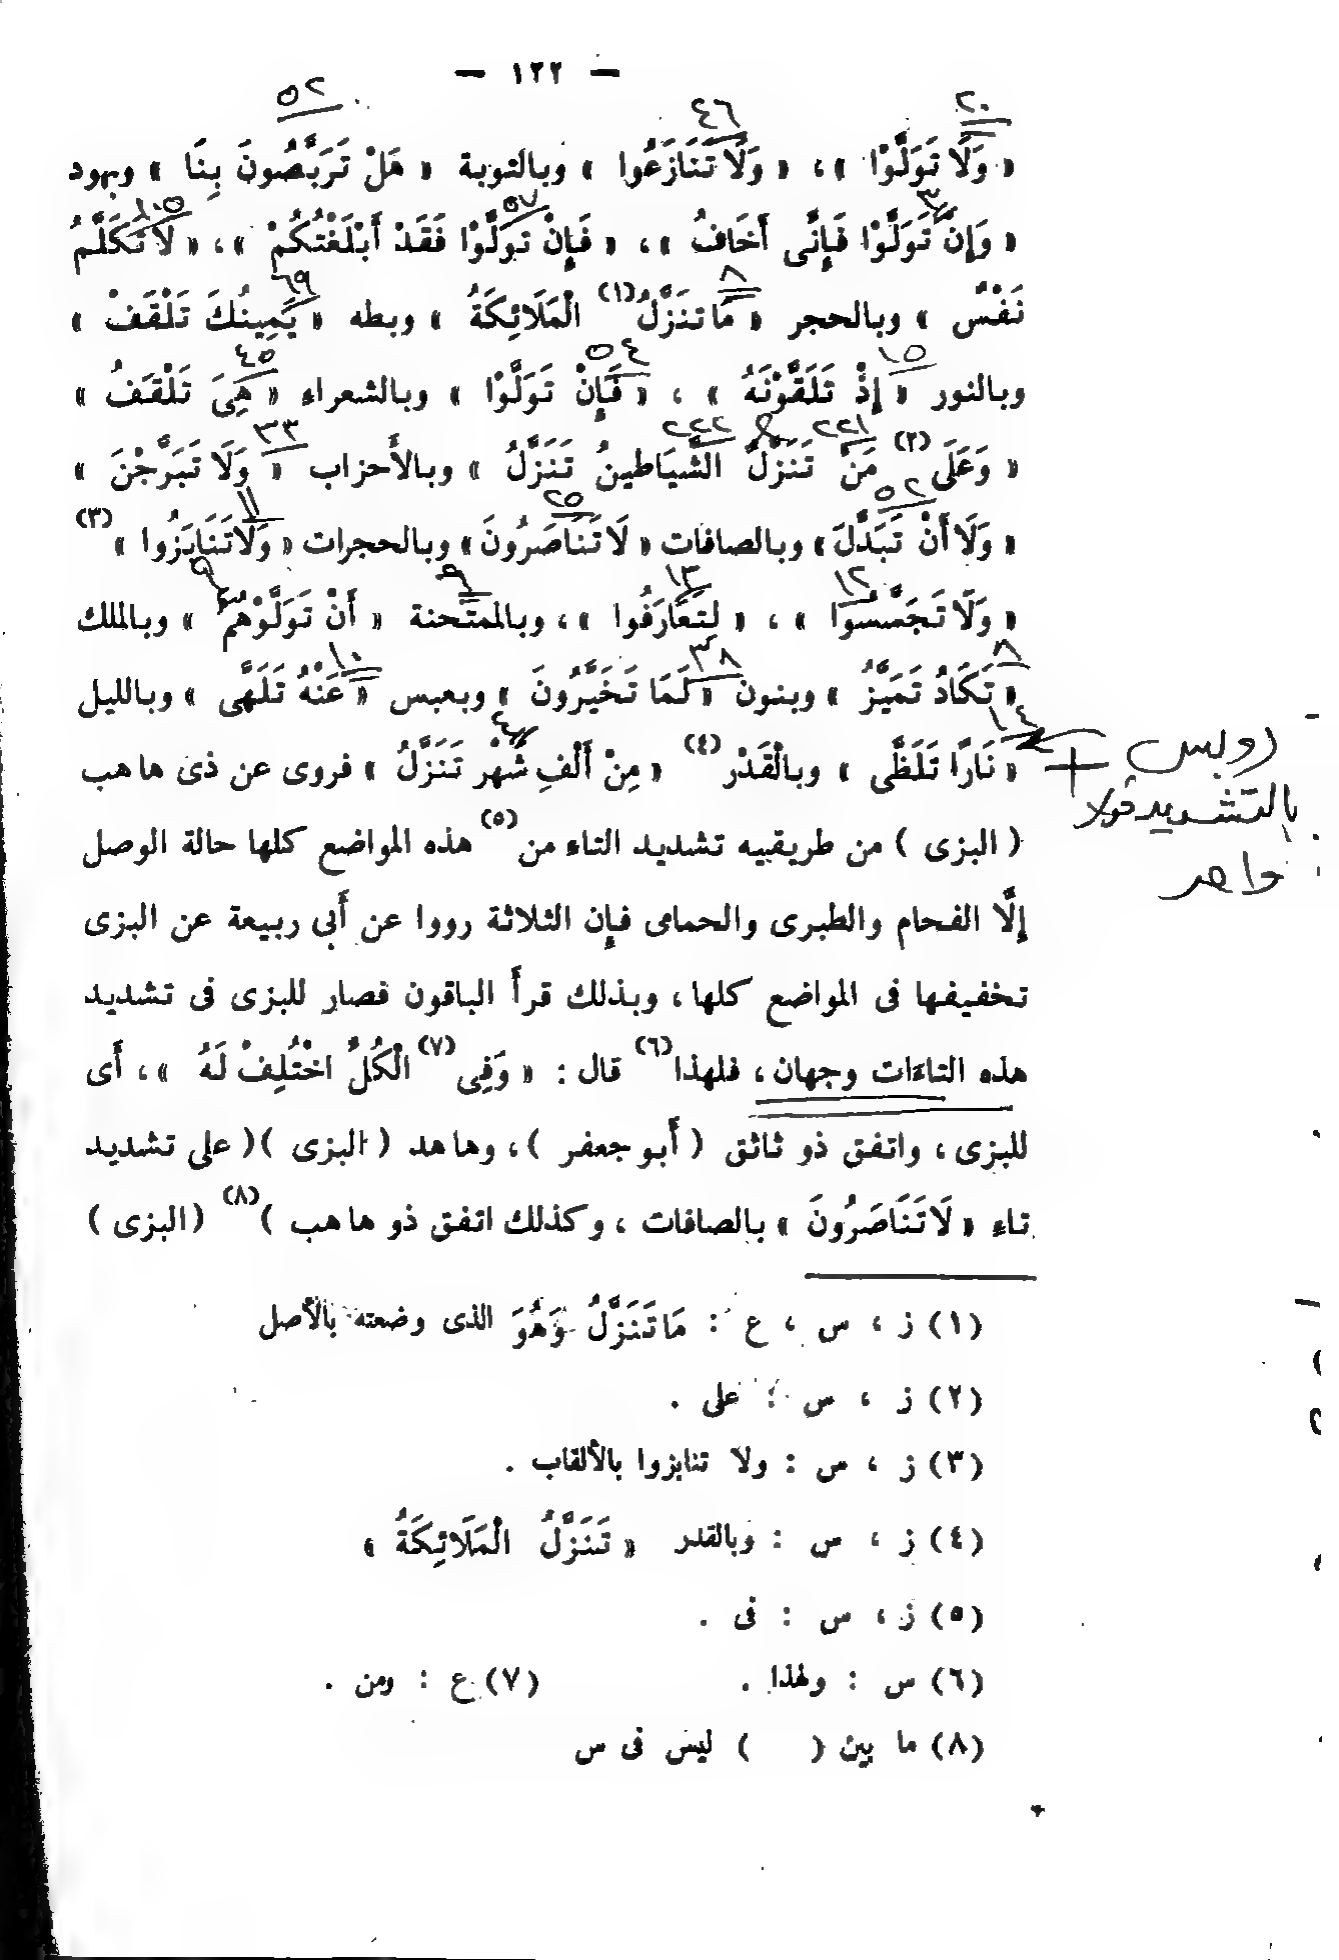 — ١٢٢ —
٢٠ ٤٦ ٥٢
« وَلَا تَوَلَّوْا »، « وَلَا تَنَازَعُوا » وبالتوبة « هَلْ تَرَبَّصُونَ بِنَا » وبهود
٣ ٥٧ ١٠٥
« وَإِنْ تَوَلَّوْا فَإِنِّى أَخَافُ »، « فَإِنْ تَوَلَّوْا فَقَدْ أَبْلَغْتُكُمْ »، « لَا تَكَلَّمُ
٨ ٦٩
نَفْسٌ » وبالحجر « مَا تَنَزَّلُ (١) الْمَلَائِكَةُ » وبطه « يَمِينُكَ تَلْقَفْ »
١٥ ٥٤ ٤٥
وبالنور « إِذْ تَلَقَّوْنَهُ » ، « فَإِنْ تَوَلَّوْا » وبالشعراء « هِىَ تَلْقَفُ »
٢٢١ & ٢٢٢ ٣٣
« وَعَلَى (٢) مَنْ تَنَزَّلُ الشَّيَاطِينُ تَنَزَّلُ » وبالأحزاب « وَلَا تَبَرَّجْنَ »
٥٢ ٢٥ ١١
« وَلَا أَنْ تَبَدَّلَ » وبالصافات « لَا تَنَاصَرُونَ » وبالحجرات « وَلَا تَنَابَزُوا » (٣)
١٢ ١٣ ٩
« وَلَا تَجَسَّسُوا » ، « لِتَعَارَفُوا »، وبالممتحنة « أَنْ تَوَلَّوْهُمْ » وبالملك
٨ ٣٨ ١٠
« تَكَادُ تَمَيَّزُ » وبنون « لَمَا تَخَيَّرُونَ » وبعبس « عَنْهُ تَلَهَّى » وبالليل
١٤ ٤
« نَارًا تَلَظَّى » وبالْقَدْر (٤) « مِنْ أَلْفِ شَهْرٍ تَنَزَّلُ » فروى عن ذى ها هب
رويس
بالتشديد قولا
واحد
( البزى ) من طريقيه تشديد التاء من (٥) هذه المواضع كلها حالة الوصل
إلَّا الفحام والطبرى والحمامى فإن الثلاثة رووا عن أبى ربيعة عن البزى
تخفيفها فى المواضع كلها، وبذلك قرأ الباقون فصار للبزى فى تشديد
هذه التاءات وجهان، فلهذا (٦) قال : « وَفِى (٧) الْكُلِّ اخْتُلِفْ لَهُ »، أَى
للبزى، واتفق ذو ثاثق ( أبو جعفر )، وها هد ( البزى )( على تشديد
تاء « لَا تَنَاصَرُونَ » بالصافات ، وكذلك اتفق ذو ها هب ) (٨) ( البزى )
(١) ز ، س ، ع : مَا تَنَزَّلُ وَهُوَ الذى وضعته بالأصل
(٢) ز ، س : على .
(٣) ز ، س : ولا تنابزوا بالألقاب .
(٤) ز ، س : وبالقدر « تَنَزَّلُ الْمَلَائِكَةُ »
(٥) ز ، س : فى .
(٦) س : ولهذا . (٧) ع : ومن .
(٨) ما بين ( ) ليس فى س